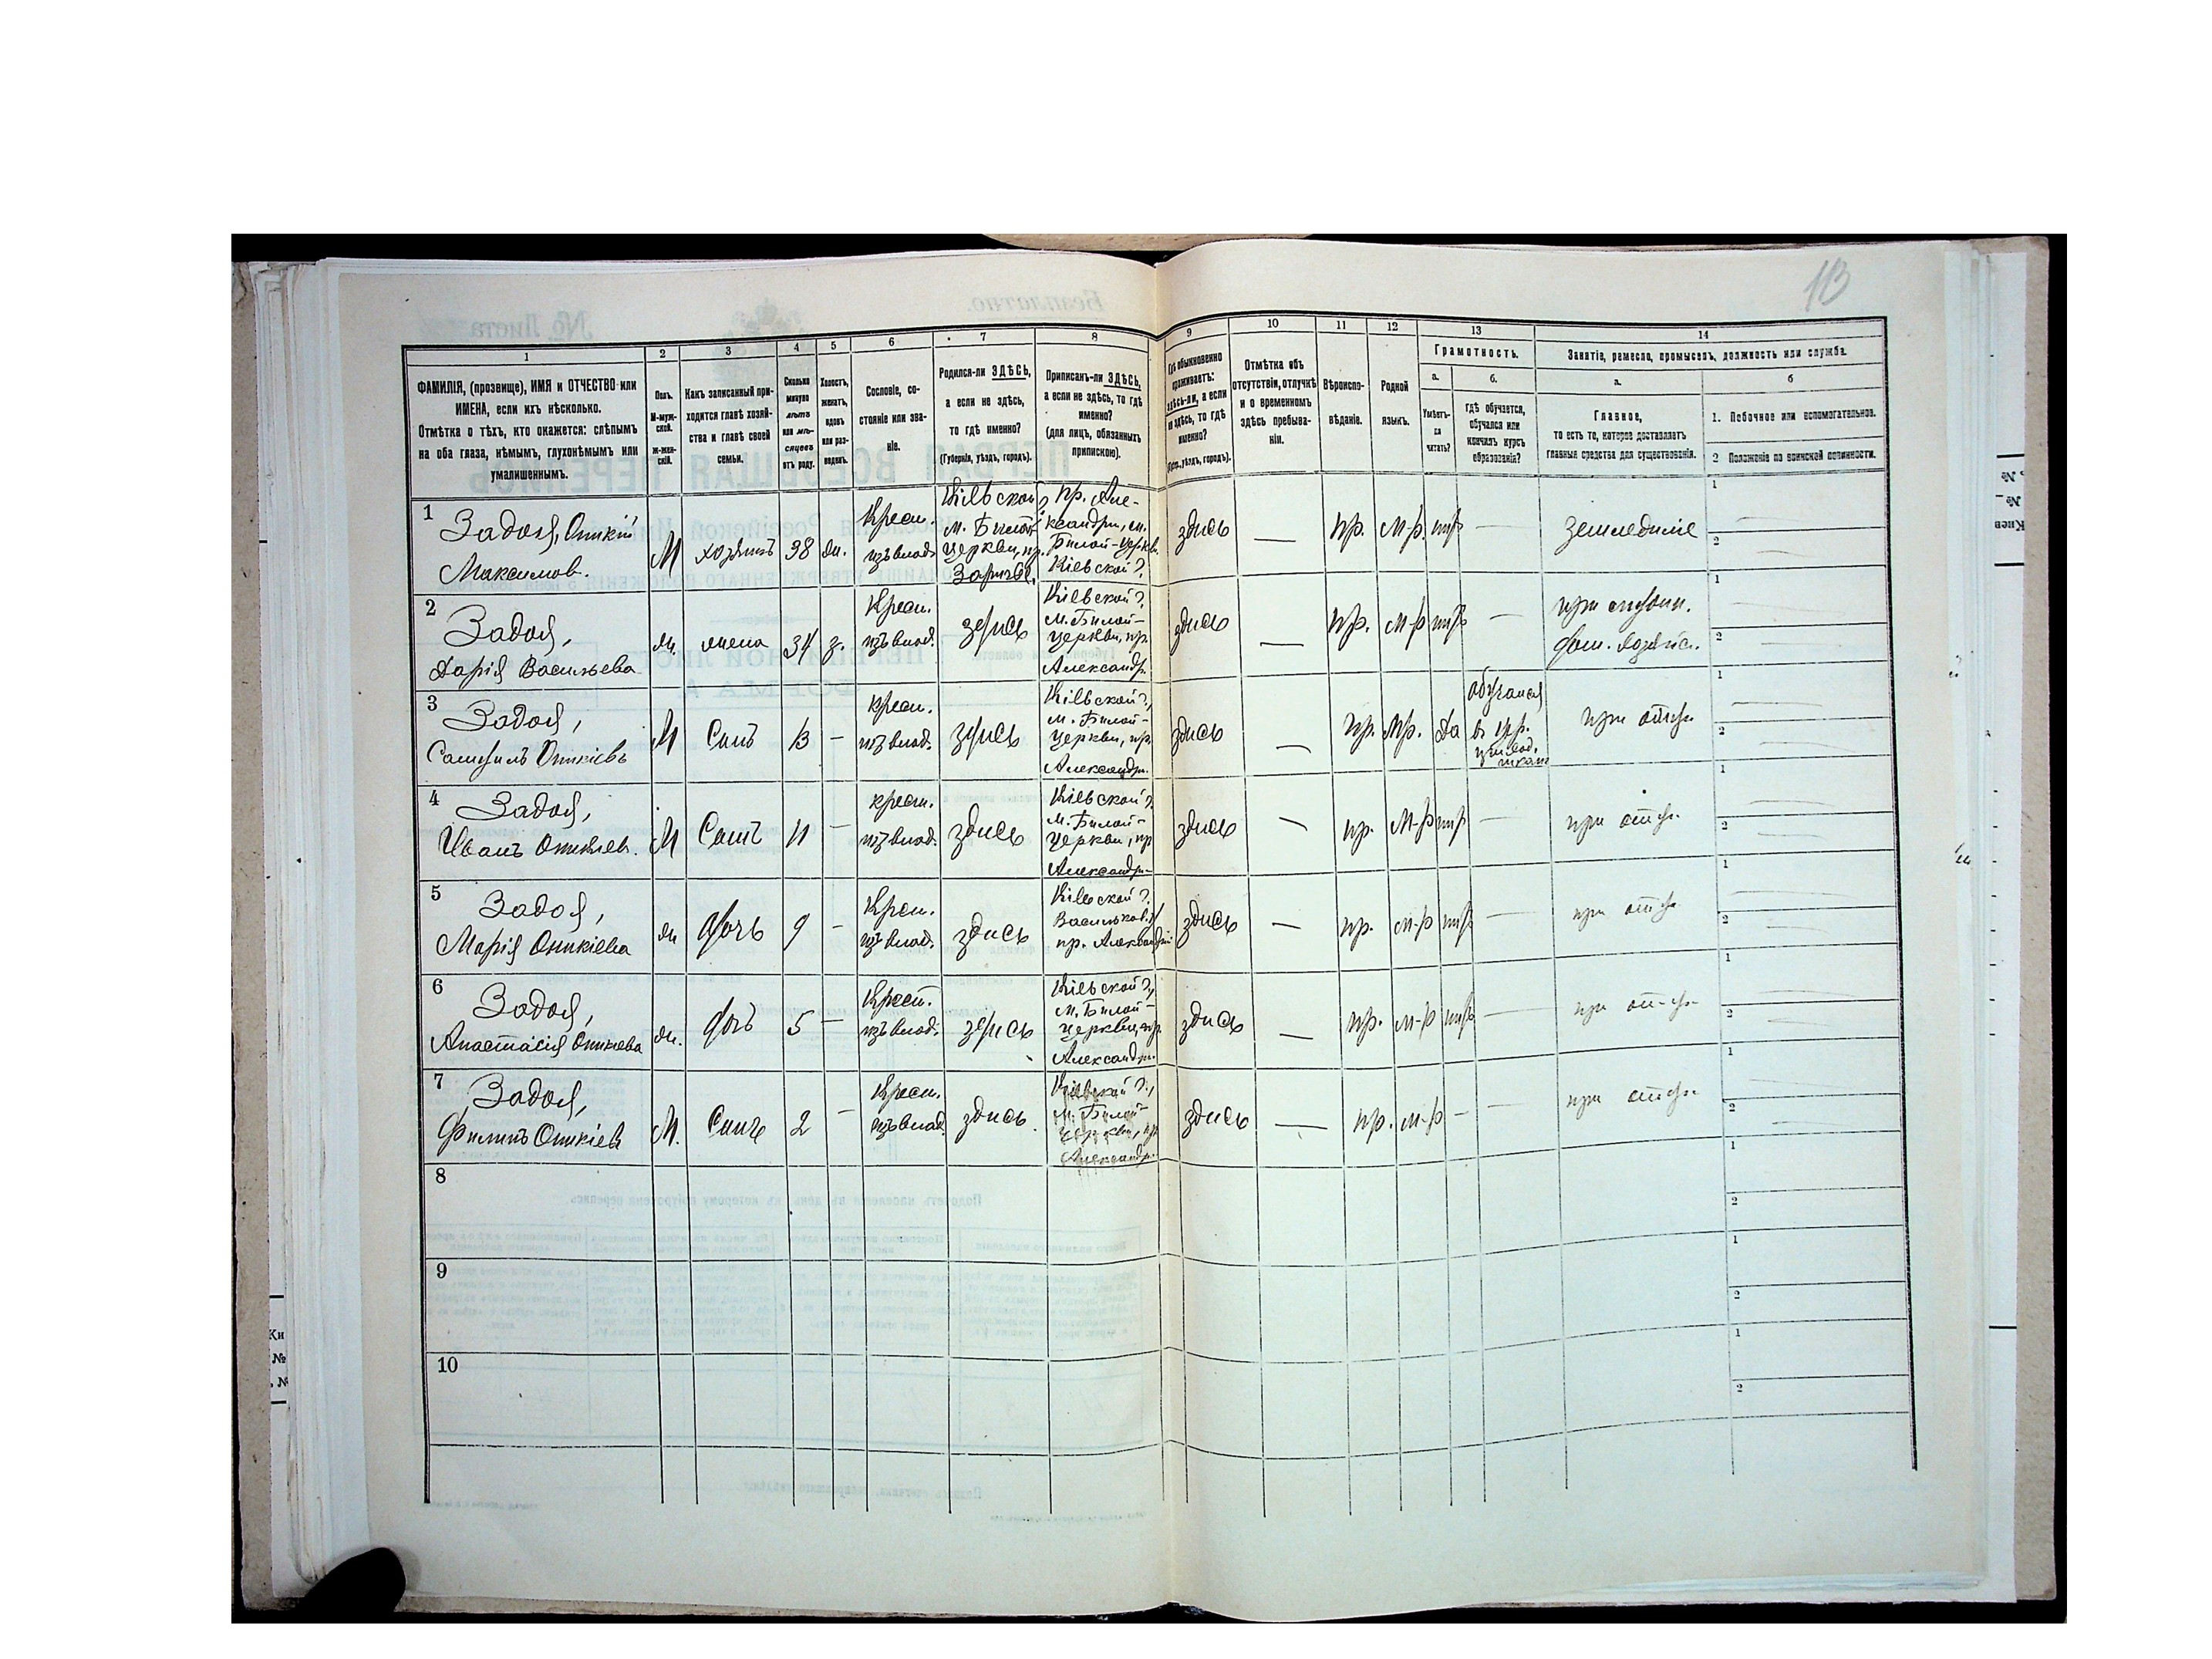 13
1 2 3 4 5 6 7 8 9 10 11 12 13 14
ФАМИЛІЯ, (прозвище), ИМЯ и ОТЧЕСТВО или
ИМЕНА, если ихъ нѣсколько.
Отмѣтка о тѣхъ, кто окажется: слѣпымъ
на оба глаза, нѣмымъ, глухонѣмымъ или
умалишеннымъ.
Полъ.
М-муж-
ской.
ж-жен-
скій.
Какъ записанный при-
ходится главѣ хозяй-
ства и главѣ своей
семьи.
Сколько
минуло
лѣтъ
или мѣ-
сяцевъ
отъ роду.
Холостъ,
женатъ,
вдовъ
или раз-
веденъ.
Сословіе, со-
стояніе или зва-
ніе.
Родился-ли ЗДѢСЬ,
а если не здѣсь,
то гдѣ именно?
(Губернія, уѣздъ, городъ).
Приписанъ-ли ЗДѢСЬ,
а если не здѣсь, то гдѣ
именно?
(для лицъ, обязанныхъ
припискою).
Гдѣ обыкновенно
проживаетъ:
здѣсь-ли, а если
не здѣсь, то гдѣ
именно?
(Губ., уѣздъ, городъ).
Отмѣтка объ
отсутствіи, отлучкѣ
и о временномъ
здѣсь пребыва-
ніи.
Вѣроиспо-
вѣданіе.
Родной
языкъ.
Грамотность.
а. б.
Умѣетъ-
ли
читать?
гдѣ обучается,
обучался или
кончилъ курсъ
образованія?
Занятіе, ремесло, промыселъ, должность или служба.
а. б
Главное,
то есть то, которое доставляетъ
главныя средства для существованія.
1. Побочное или вспомогательное.
2 Положеніе по воинской повинности.
1 Задоя, Оникій
Максимов.
М хозяинъ 38 ж. Крест.
из влад.
Кіевской г.
м. Билой
Церкви, пр.
Заричье,
пр. Але-
ксандри, м.
Билой-Церкв.
Кіевской г.
здись — пр. м-р. — земледиліе
2 Задоя,
Дарія Васильева
ж. жена 34 з. Крест.
из влад.
здись
Кіевской г.
м. Билой-
Церкви, пр.
Александр.
здись — пр. м-р —
3 Задоя,
Самуилъ Оникіевъ
М Синъ 13 — крест.
из влад.
здись
Кіевской г.,
м. Билой-
Церкви, пр.
Александр.
здись — пр. м-р. да
обучался
в цер.
при отци
4 Задоя,
Иванъ Оникіев.
М Синъ 11 — крест.
из влад.
здись
Кіевской г.
м. Билой-
Церкви, пр
Александр.
здись — пр. м-р — при отци
5 Задоя,
Марія Оникіева
ж дочь 9 — Крест.
из влад.
здись
Кіевской г.
Васильков. у
пр. Александрии
здись — пр. м-р — при отци
6 Задоя,
Анастасія Оникіева
ж. дочь 5 — Крест.
из влад.
здись
Кіевской г.,
м. Билой-
Церкви, пр
Александр.
здись — пр. м-р — при отци
7 Задоя,
Филипъ Оникіев
М. Синъ 2 — Крест.
из влад.
здись.
Кіевской г.,
м. Билой-
Церкви, пр
Александр.
здись — пр. м-р — — при отци
8
9
10